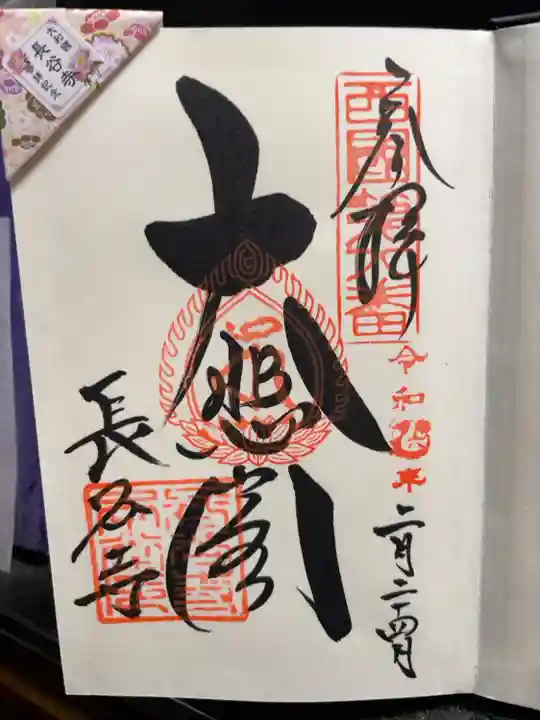 奉拝
西國第八番
令和 年
二月二十四日
大悲閣
長谷寺
大和國
長谷寺